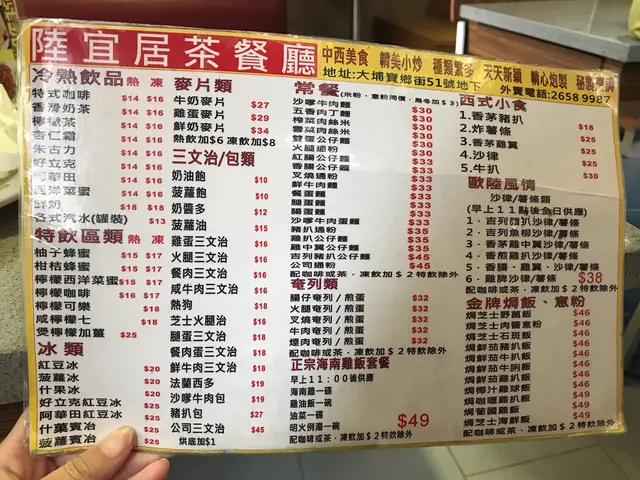 陸宜居茶餐廳
中西美食 精美小炒 種類繁多 天天新穎 精心炮製
地址:大埔寶鄉街51號地下 外賣電話:2658 9987
冷熱飲品 熱 凍
特式咖啡 $14 $16
香滑奶茶 $14 $16
檸檬茶 $14 $16
杏仁霜 $14 $16
朱古力 $14 $16
好立克 $14 $16
阿華田 $14 $16
西洋菜蜜 $14 $16
鮮奶 $18 $18
各式汽水(罐裝) $13
特飲區類 熱 凍
柚子蜂蜜 $15 $17
柑桔蜂蜜 $15 $17
檸檬西洋菜蜜 $15 $17
檸檬咖啡 $16 $17
檸檬可樂 $18
咸檸檬七 $18
煲檸檬加薑 $25
冰類
紅豆冰 $20
菠蘿冰 $20
什果冰 $20
好立克紅豆冰 $25
阿華田紅豆冰 $25
什菓賓冶 $25
菠蘿賓冶 $25
麥片類
牛奶麥片 $27
雞蛋麥片 $29
鮮奶麥片 $34
熱飲加$6凍飲加$8
三文治/包類
奶油飽 $10
菠蘿飽 $10
奶醬多 $12
菠蘿油 $15
雞蛋三文治 $16
火腿三文治 $16
餐肉三文治 $16
咸牛肉三文治 $16
熱狗 $18
芝士火腿治 $18
腿蛋三文治 $18
餐肉蛋三文治 $18
法蘭西多 $19
沙嗲牛肉包 $19
豬扒包 $27
公司三文治 $45
烘底加$1
常餐 (米粉、意粉同價,烏冬加$3)
沙嗲牛肉麵 $30
五香肉丁麵 $30
榨菜肉絲米 $30
雪菜肉絲米 $30
雙蛋公仔麵 $30
火腿通粉 $33
紅腸公仔麵 $33
叉燒通粉 $33
鮮牛肉麵 $33
餐蛋麵 $33
腿蛋麵 $33
腸蛋麵 $33
沙嗲牛肉蛋麵 $33
豬扒通粉 $35
雞扒公仔麵 $35
雞中翼公仔麵 $35
吉列豬扒公仔麵 $45
公司通粉 $45
配咖啡或茶,凍飲加$2特飲除外
奄列類
腸仔奄列/煎蛋 $32
火腿奄列/煎蛋 $32
叉燒奄列/煎蛋 $32
牛肉奄列/煎蛋 $32
煙肉奄列/煎蛋 $32
配咖啡或茶,凍飲加$2特飲除外
正宗海南雞飯套餐
早上11:00後供應
海南雞一碟
雞油飯一碗
油菜一碟
明火例湯一碗 $49
配咖啡或茶,凍飲加$2特飲除外
西式小食
1.香茅豬扒
2.炸薯條 $18
3.香茅雞翼 $25
4.沙律 $25
5.牛扒 $30
歐陸風情
沙律/薯條類
(早上11點後全日供應)
2.吉列魚柳沙律/薯條
3.香茅雞中翼沙律/薯條
4.香煎雞扒沙律/薯條
5.香腸、雞翼、沙律/薯條
6.雞脾沙律/薯條 $38
配咖啡或茶,凍飲加$2特飲除外
金牌焗飯、意粉
$46
$46
$46
$46
$46
$46
$46
$49
$49
$49